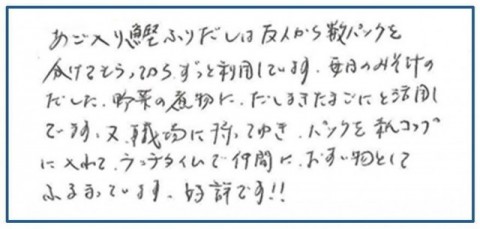 あご入り鰹ふりだしは友人から数パックを
分けてもらってからずっと利用しています。毎日のみそ汁の
だしに、野菜の煮物に、だしまきたまごにと活用し
ています。又、職場に持ってゆき、パックを紙コップ
に入れて、ランチタイムで仲間に、お吸い物として
ふるまっています。好評です!!